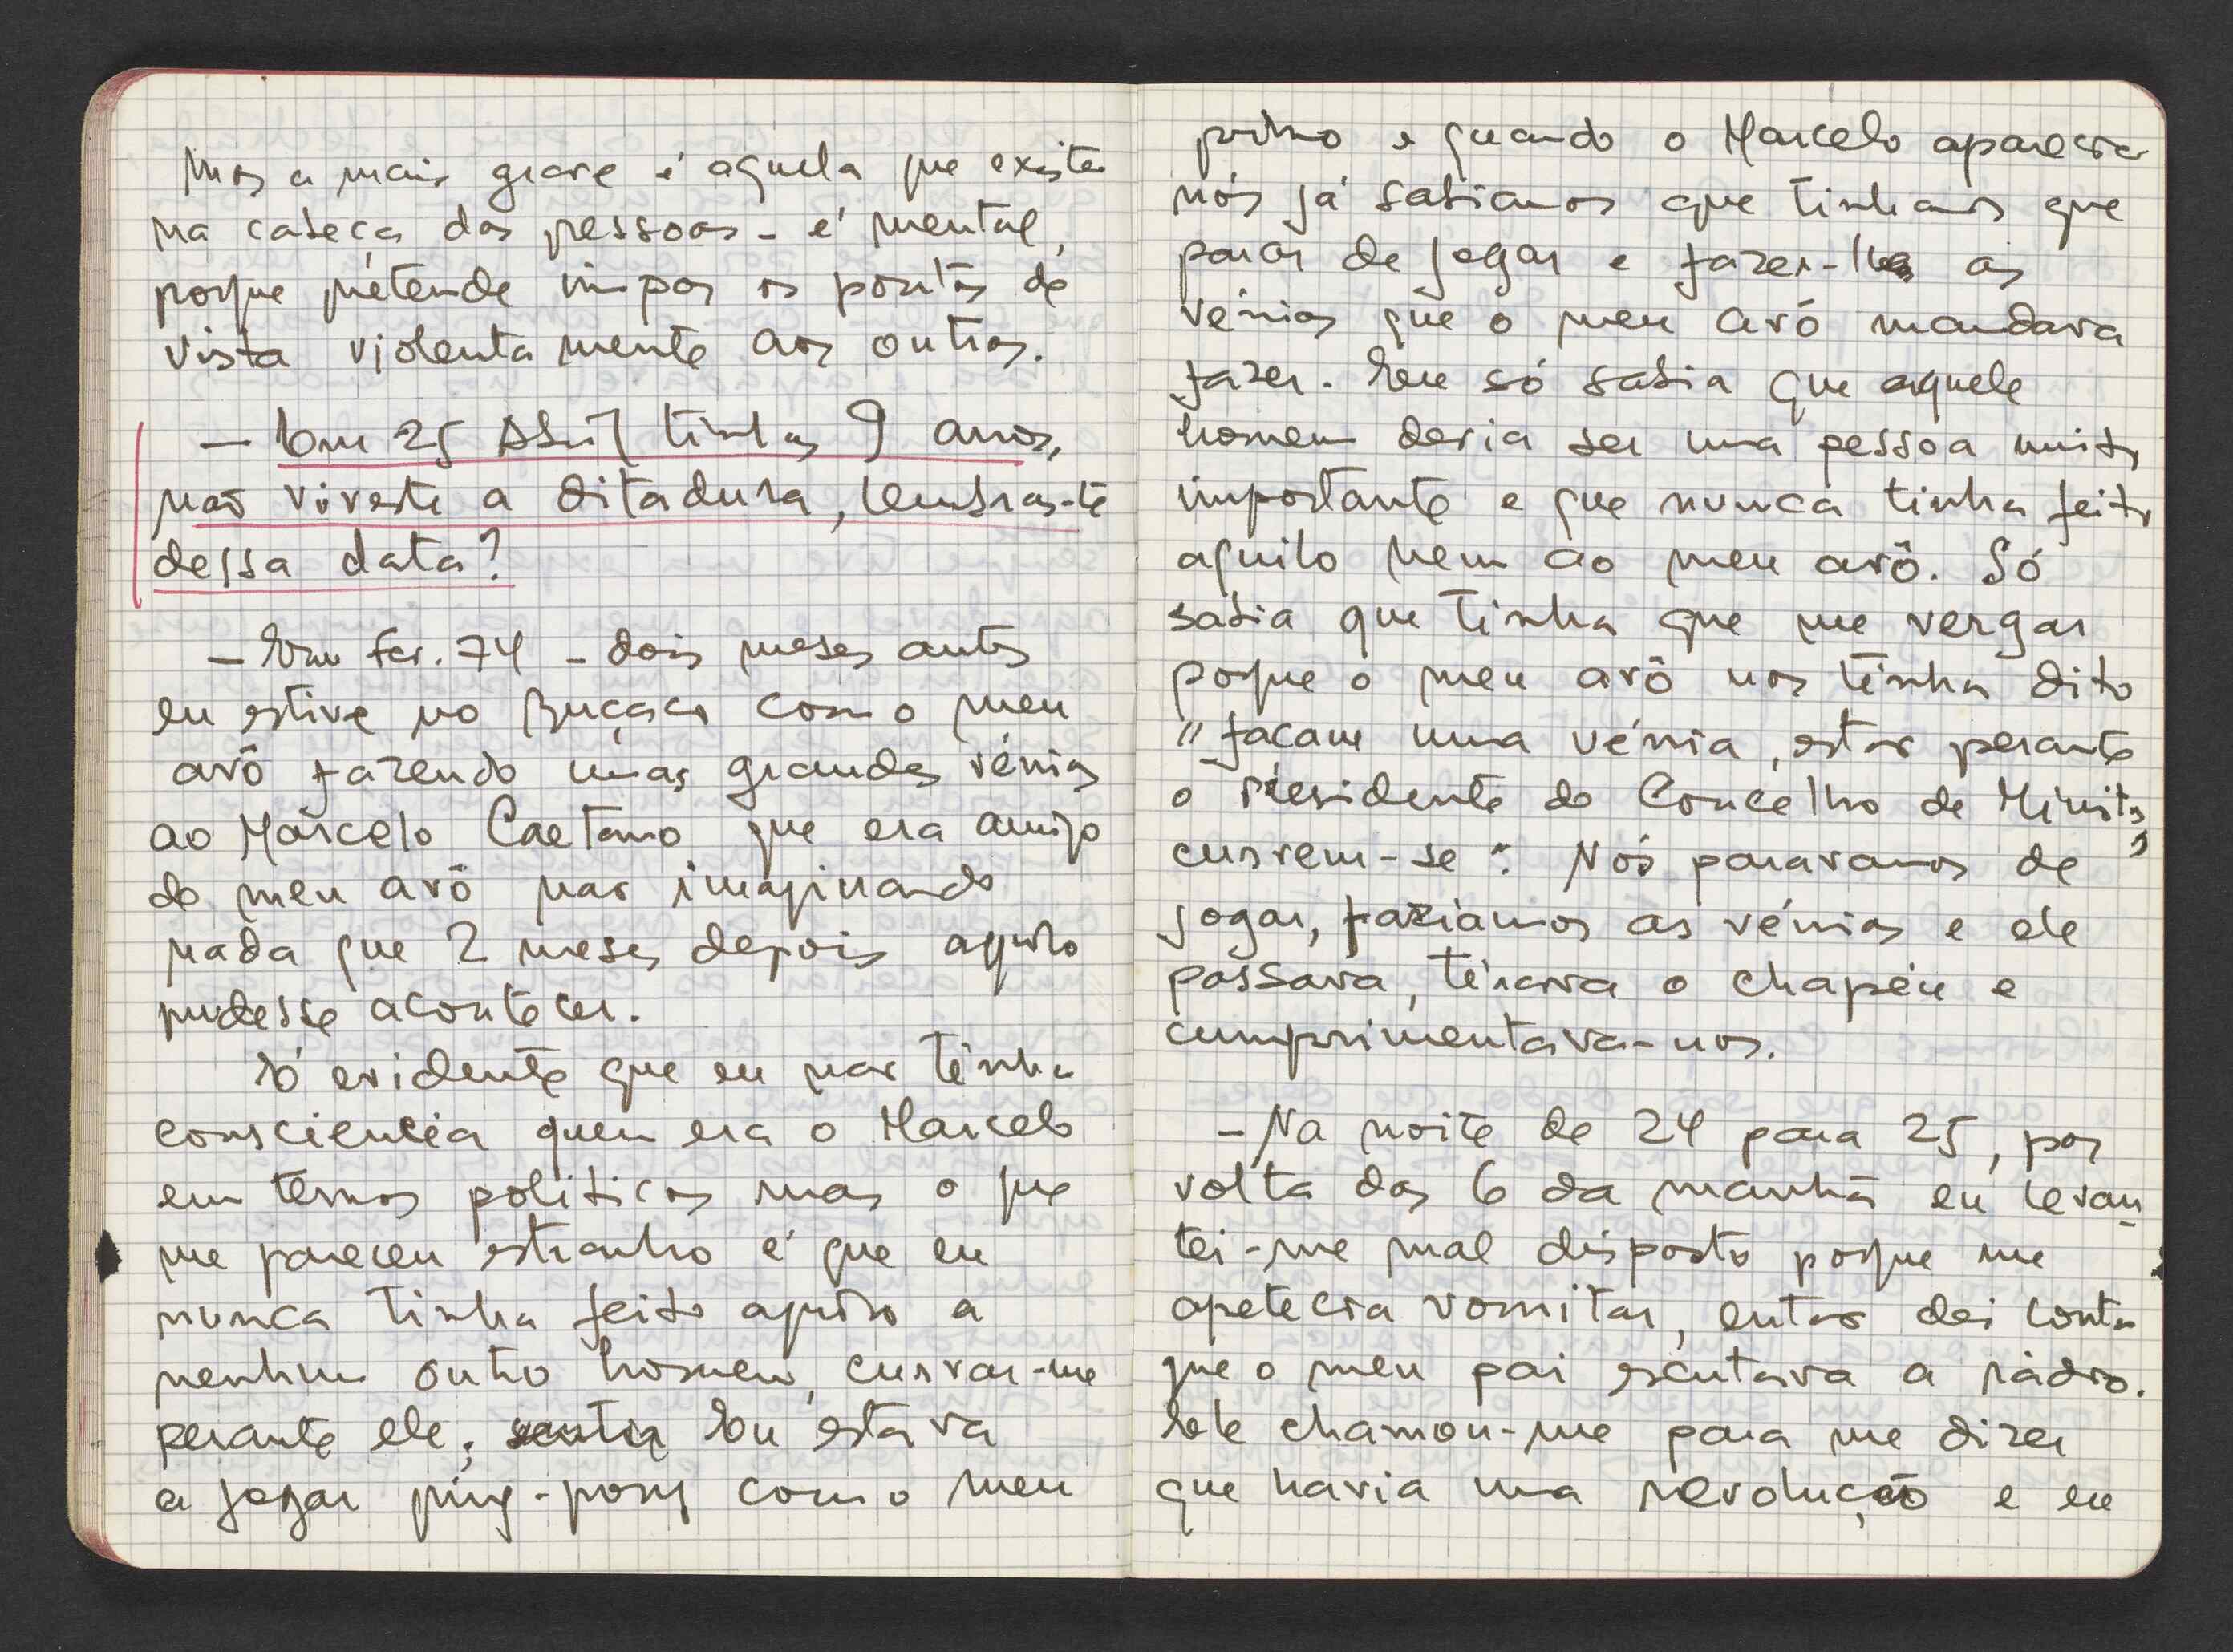 Mas a mais grave é aquela que existe
na cabeça das pessoas - é mental,
porque pretende impor os pontos de
vista violentamente aos outros.
— Em 25 Abril tinhas 9 anos,
não viveste a ditadura, lembras-te
dessa data?
— Em Fev. 74 - dois meses antes
eu estive no Buçaco com o meu
avô fazendo umas grandes vénias
ao Marcelo Caetano que era amigo
do meu avô não imaginando
nada que 2 meses depois aquilo
pudesse acontecer.
É evidente que eu não tinha
consciencia quem era o Marcelo
em termos politicos mas o que
me pareceu estranho é que eu
nunca tinha feito aquilo a
nenhum outro homem, curvar-me
perante ele; Eu estava
a jogar ping-pong com o meu
primo e quando o Marcelo aparecia
nós já sabiamos que tinhamos que
parar de jogar e fazer-lhe as
vénias que o meu avô mandava
fazer. Eu só sabia que aquele
homem devia ser uma pessoa muito
importante e que nunca tinha feito
aquilo nem ao meu avô. Só
sabia que tinha que me vergar
porque o meu avô nos tinha dito
"façam uma vénia, estão perante
o Presidente do Concelho de Ministros,
curvem-se". Nós paravamos de
jogar, faziamos as vénias e ele
passava, tirava o chapéu e
cumprimentava-nos.
- Na noite de 24 para 25, por
volta das 6 da manhã eu levan-
tei-me mal disposto porque me
apetecia vomitar, então dei conta
que o meu pai escutava a rádio.
Ele chamou-me para me dizer
que havia uma revolução e eu